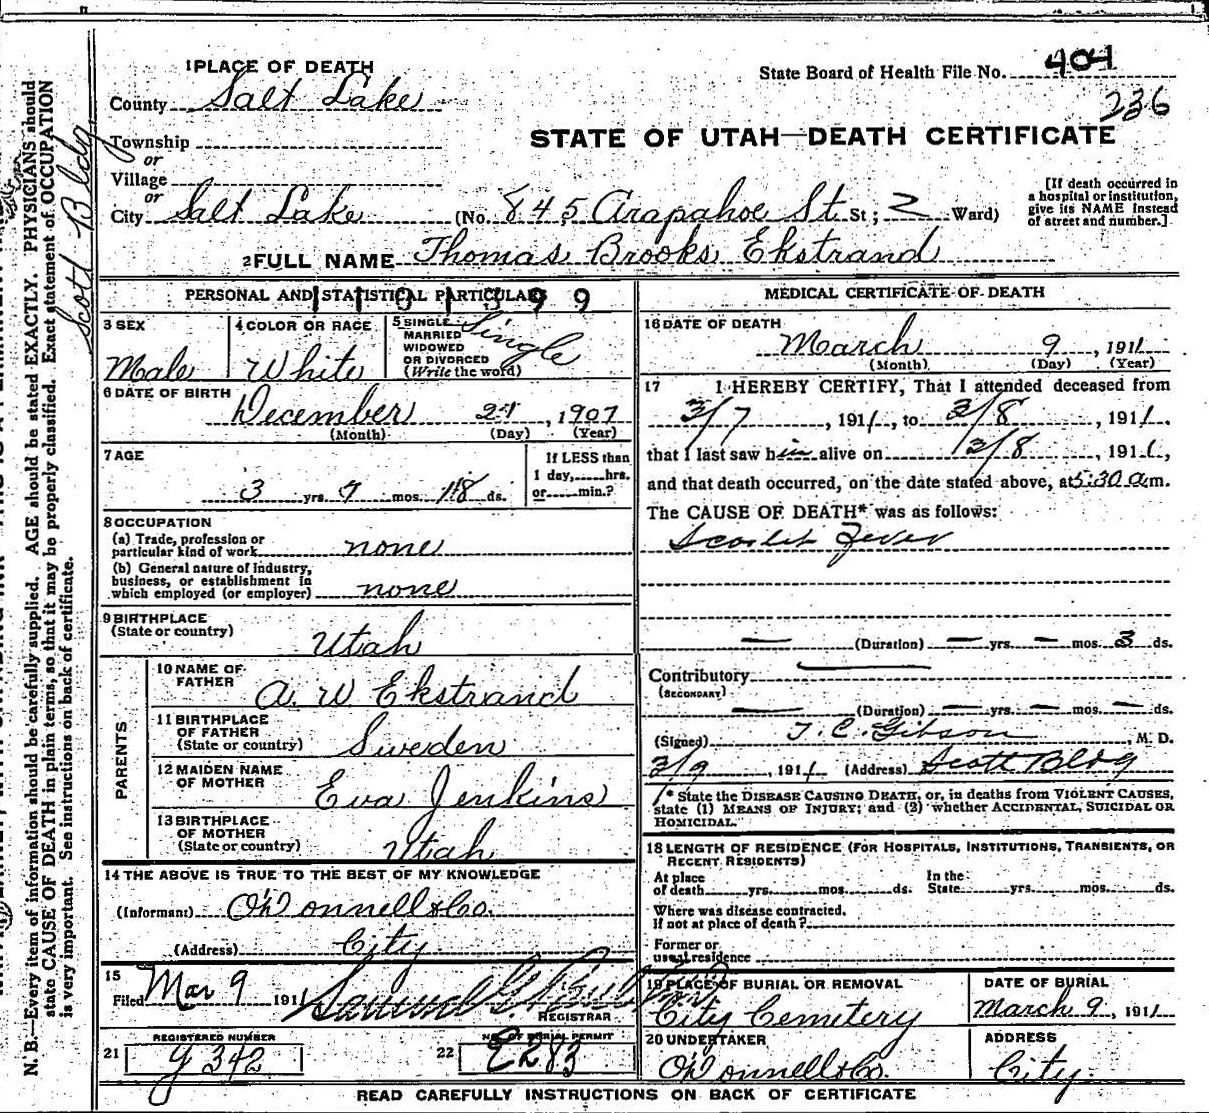 1 PLACE OF DEATH
State Board of Health File No. 404
236
County Salt Lake
STATE OF UTAH—DEATH CERTIFICATE
Township
or
Village
or
City Salt Lake (No. 845 Arapahoe St St; 2 Ward)
[If death occurred in a hospital or institution, give its NAME instead of street and number.]
2 FULL NAME Thomas Brooks Ekstrand
PERSONAL AND STATISTICAL PARTICULARS
3 SEX
Male
4 COLOR OR RACE
White
5 SINGLE
MARRIED
WIDOWED
OR DIVORCED
(Write the word)
Single
6 DATE OF BIRTH
December 21, 1907
(Month) (Day) (Year)
7 AGE
3 yrs. mos. 18 ds.
If LESS than
1 day,......hrs.
or......min.?
8 OCCUPATION
(a) Trade, profession or
particular kind of work none
(b) General nature of industry,
business, or establishment in
which employed (or employer) none
9 BIRTHPLACE
(State or country)
Utah
PARENTS
10 NAME OF
FATHER
A. W Ekstrand
11 BIRTHPLACE
OF FATHER
(State or country) Sweden
12 MAIDEN NAME
OF MOTHER
Eva Jenkins
13 BIRTHPLACE
OF MOTHER
(State or country) Utah
14 THE ABOVE IS TRUE TO THE BEST OF MY KNOWLEDGE
(Informant) O'Donnell & Co.
(Address) City
15
Filed Mar 9 1911
REGISTRAR
REGISTERED NUMBER
21 342
NO. OF BURIAL PERMIT
22 E283
MEDICAL CERTIFICATE OF DEATH
16 DATE OF DEATH
March 9, 1911
(Month) (Day) (Year)
17 I HEREBY CERTIFY, That I attended deceased from
3/7, 1911, to 3/8, 1911.
that I last saw him alive on 3/8, 1911,
and that death occurred, on the date stated above, at 5:30 a.m.
The CAUSE OF DEATH* was as follows:
Scarlet Fever
(Duration) — yrs. — mos. 3 ds.
Contributory
(SECONDARY)
(Duration) — yrs. — mos. — ds.
(Signed) T. C. Gibson, M. D.
3/9, 1911 (Address) Scott Bldg
* State the DISEASE CAUSING DEATH, or, in deaths from VIOLENT CAUSES,
state (1) MEANS OF INJURY; and (2) whether ACCIDENTAL, SUICIDAL OR
HOMICIDAL.
18 LENGTH OF RESIDENCE (FOR HOSPITALS, INSTITUTIONS, TRANSIENTS, OR
RECENT RESIDENTS)
At place
of death......yrs......mos......ds.
In the
State......yrs......mos......ds.
Where was disease contracted,
if not at place of death?
Former or
usual residence
19 PLACE OF BURIAL OR REMOVAL
City Cemetery
DATE OF BURIAL
March 9, 1911
20 UNDERTAKER
O'Donnell & Co.
ADDRESS
City
READ CAREFULLY INSTRUCTIONS ON BACK OF CERTIFICATE
N. B.—Every item of information should be carefully supplied. AGE should be stated EXACTLY. PHYSICIANS should
state CAUSE OF DEATH in plain terms, so that it may be properly classified. Exact statement of OCCUPATION
is very important. See instructions on back of certificate.
Scott Bldg